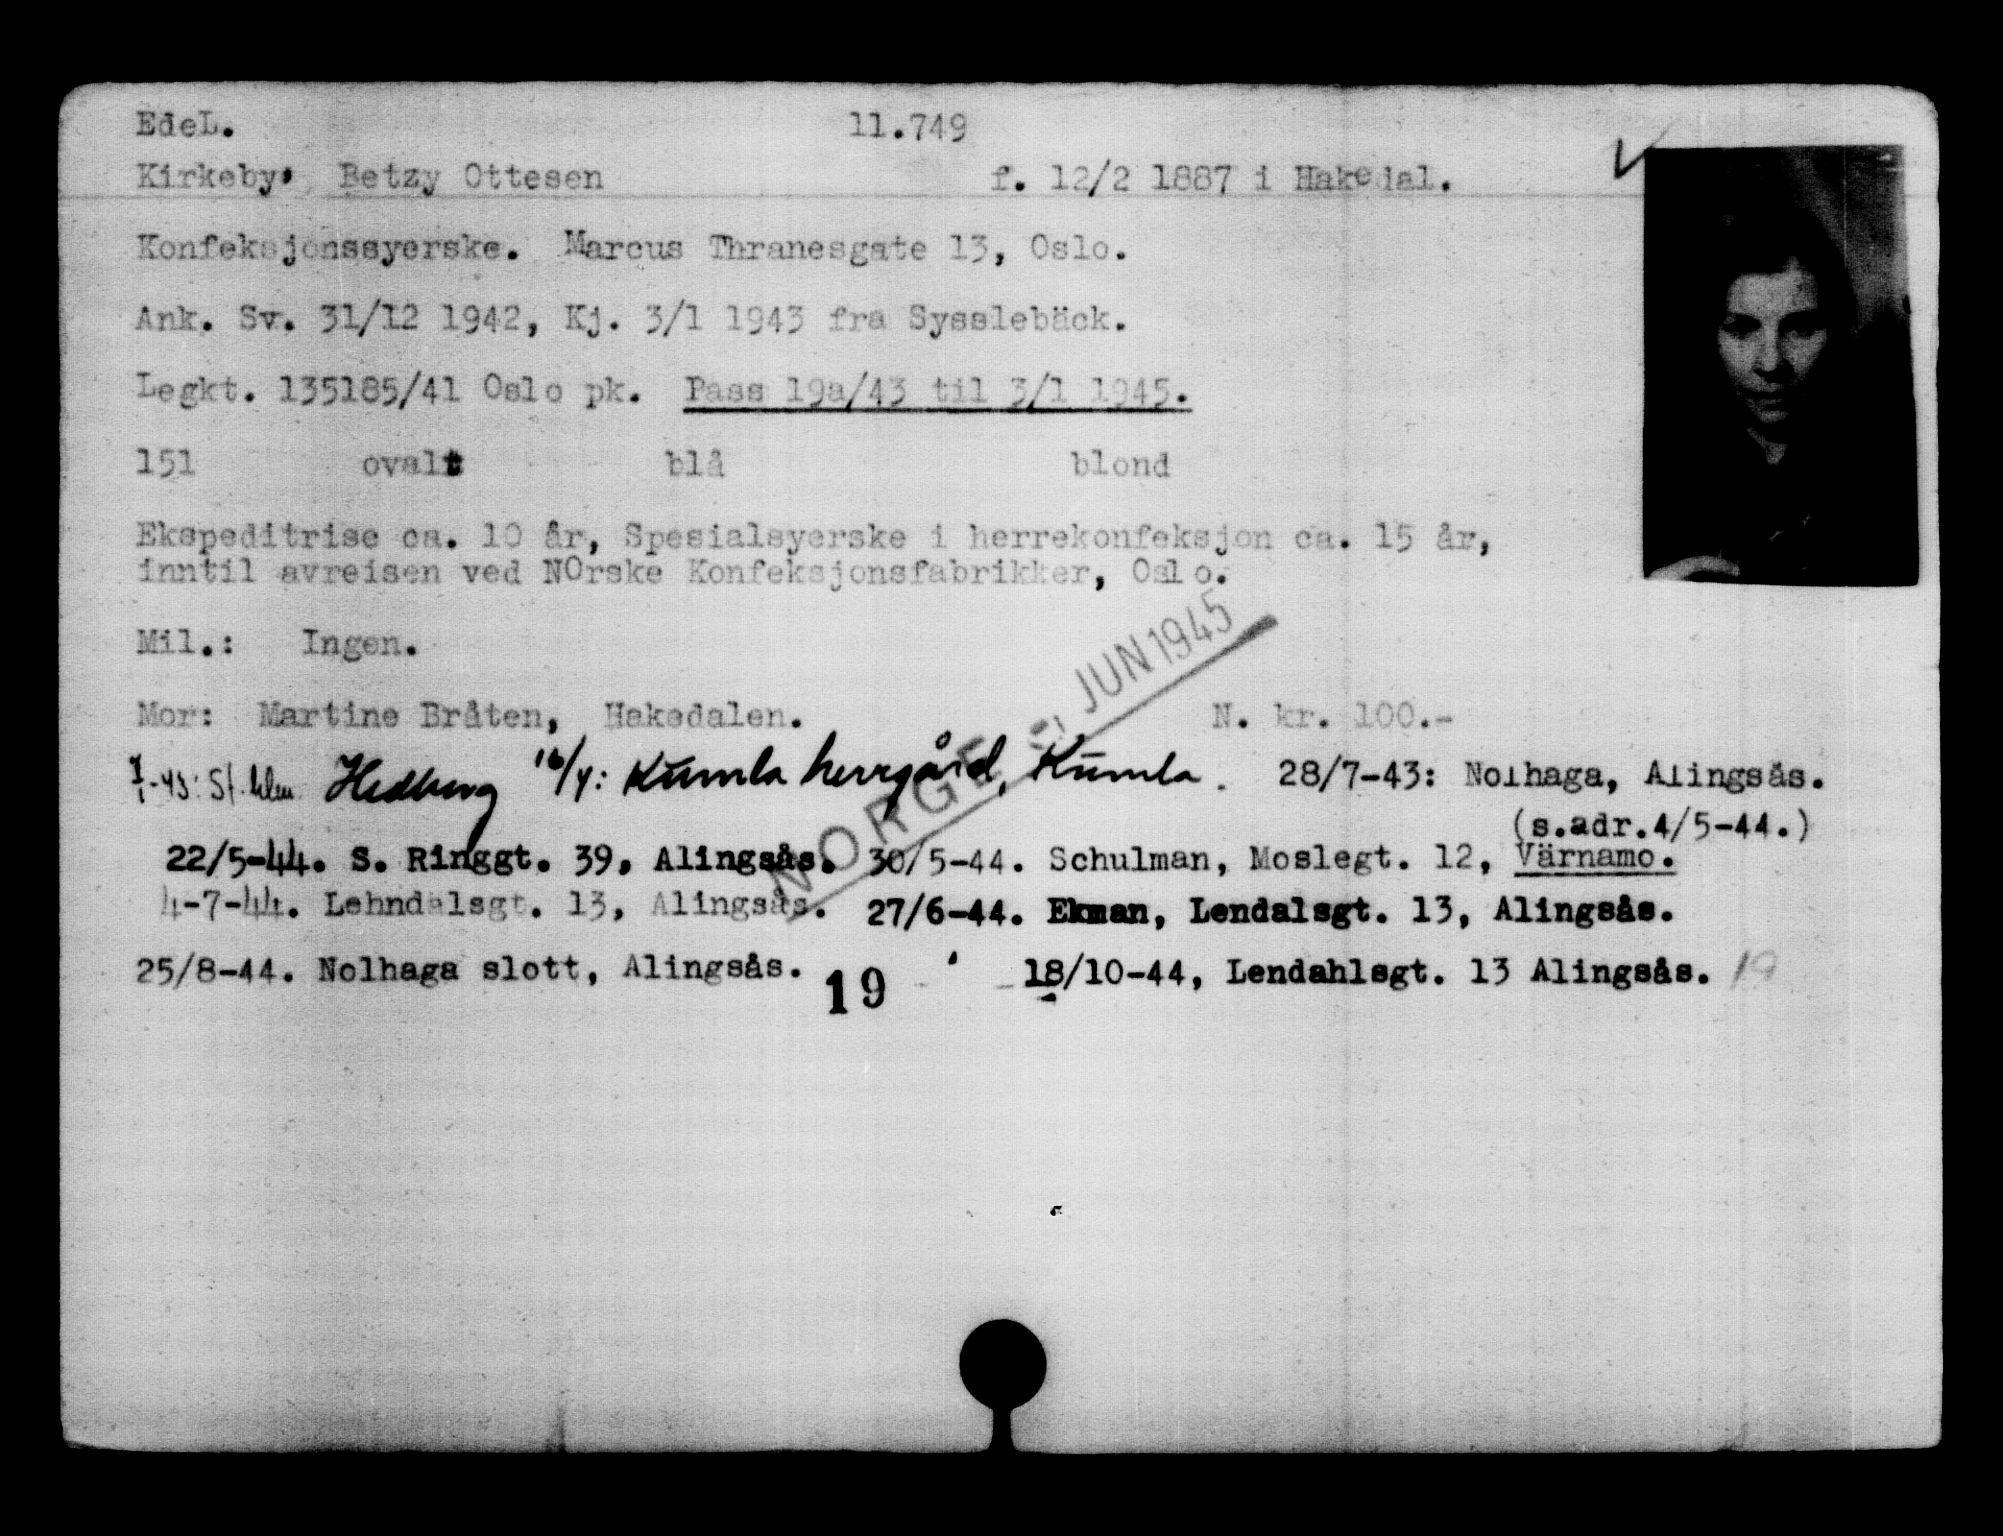 EdeL. 11.749
Kirkeby, Betzy Ottesen f. 12/2 1887 i Hakedal.
Konfeksjonssyerske. Marcus Thranesgate 13, Oslo.
Ank. Sv. 31/12 1942, Kj. 3/1 1943 fra Sysslebäck.
Legkt. 135185/41 Oslo pk. Pass 19a/43 til 3/1 1945.
151 ovalt blå blond
Ekspeditrise ca. 10 år, Spesialsyerske i herrekonfeksjon ca. 15 år,
inntil avreisen ved NOrske Konfeksjonsfabrikker, Oslo.
Mil.: Ingen.
Mor: Martine Bråten, Hakedalen. N. kr. 100.-
NORGE JUN 1945
Hedberg 16/4: Kumla herrgård, Kumla. 28/7-43: Nolhaga, Alingsås.
(s.adr.4/5-44.)
22/5-44. S. Ringgt. 39, Alingsås. 30/5-44. Schulman, Moslegt. 12, Värnamo.
4-7-44. Lehndalsgt. 13, Alingsås. 27/6-44. Ekman, Lendalsgt. 13, Alingsås.
25/8-44. Nolhaga slott, Alingsås. 19 18/10-44, Lendahlsgt. 13 Alingsås. 19